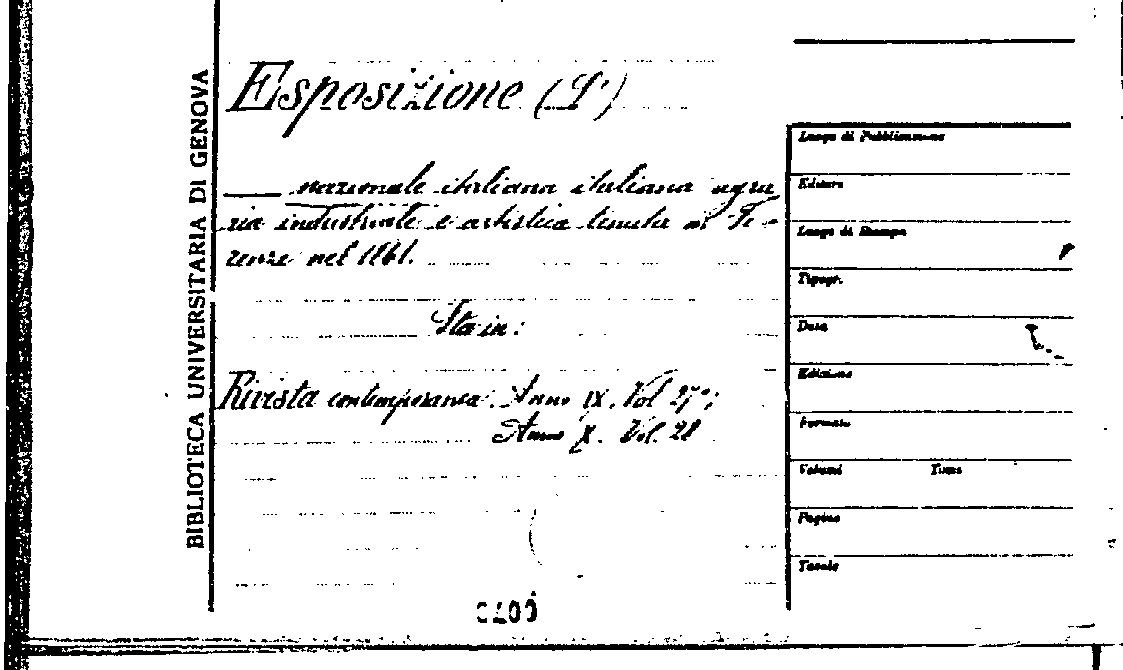 BIBLIOTECA UNIVERSITARIA DI GENOVA
Esposizione (L')
nazionale italiana italiana agra
ria industriale e artistica tenuta in Fi-
renze nel 1861.
Sta in:
Rivista contemporanea. Anno IX. Vol 27°;
Anno X. Vol. 28
Luogo di Pubblicazione
Editore
Luogo di Stampa
Tipogr.
Data
Edizione
Formato
Volumi Tomi
Pagine
Tavole